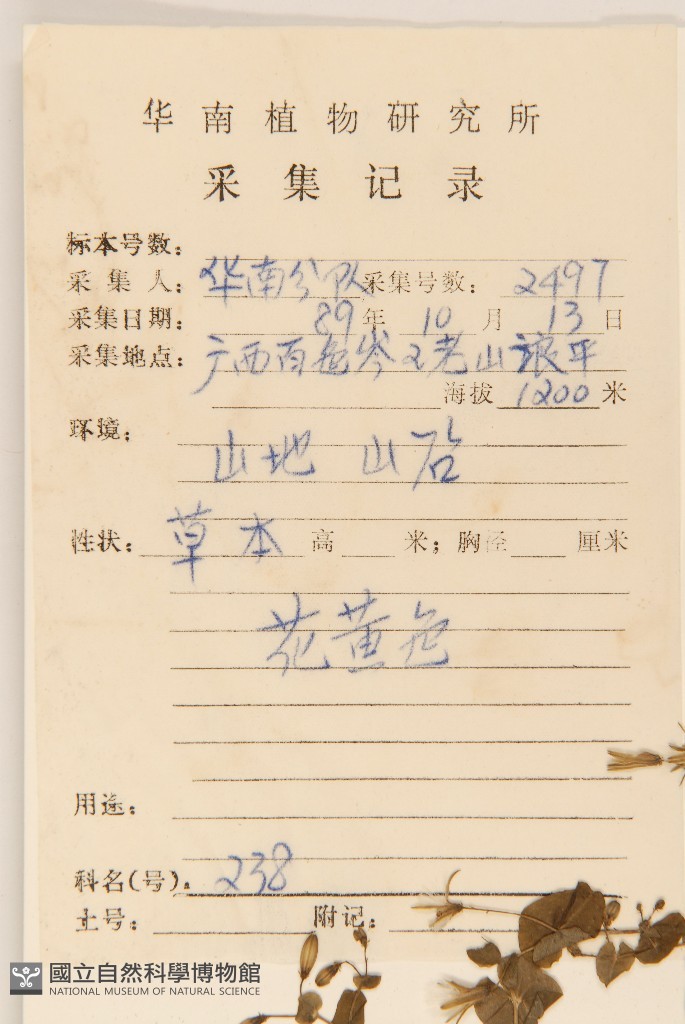 华南植物研究所
采集记录
标本号数：
采集人：华南分队 采集号数：2497
采集日期：89年10月13日
采集地点：广西百色岑王老山浪平
海拔1200米
环境：
山地 山岩
性状：草本 高 米；胸径 厘米
花黄色
用途：
科名(号)：238
土号： 附记：
國立自然科學博物館
NATIONAL MUSEUM OF NATURAL SCIENCE